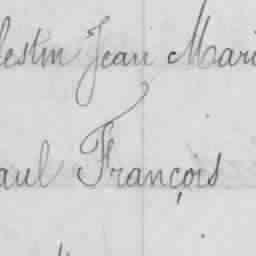 lestin Jean Mari
aul François